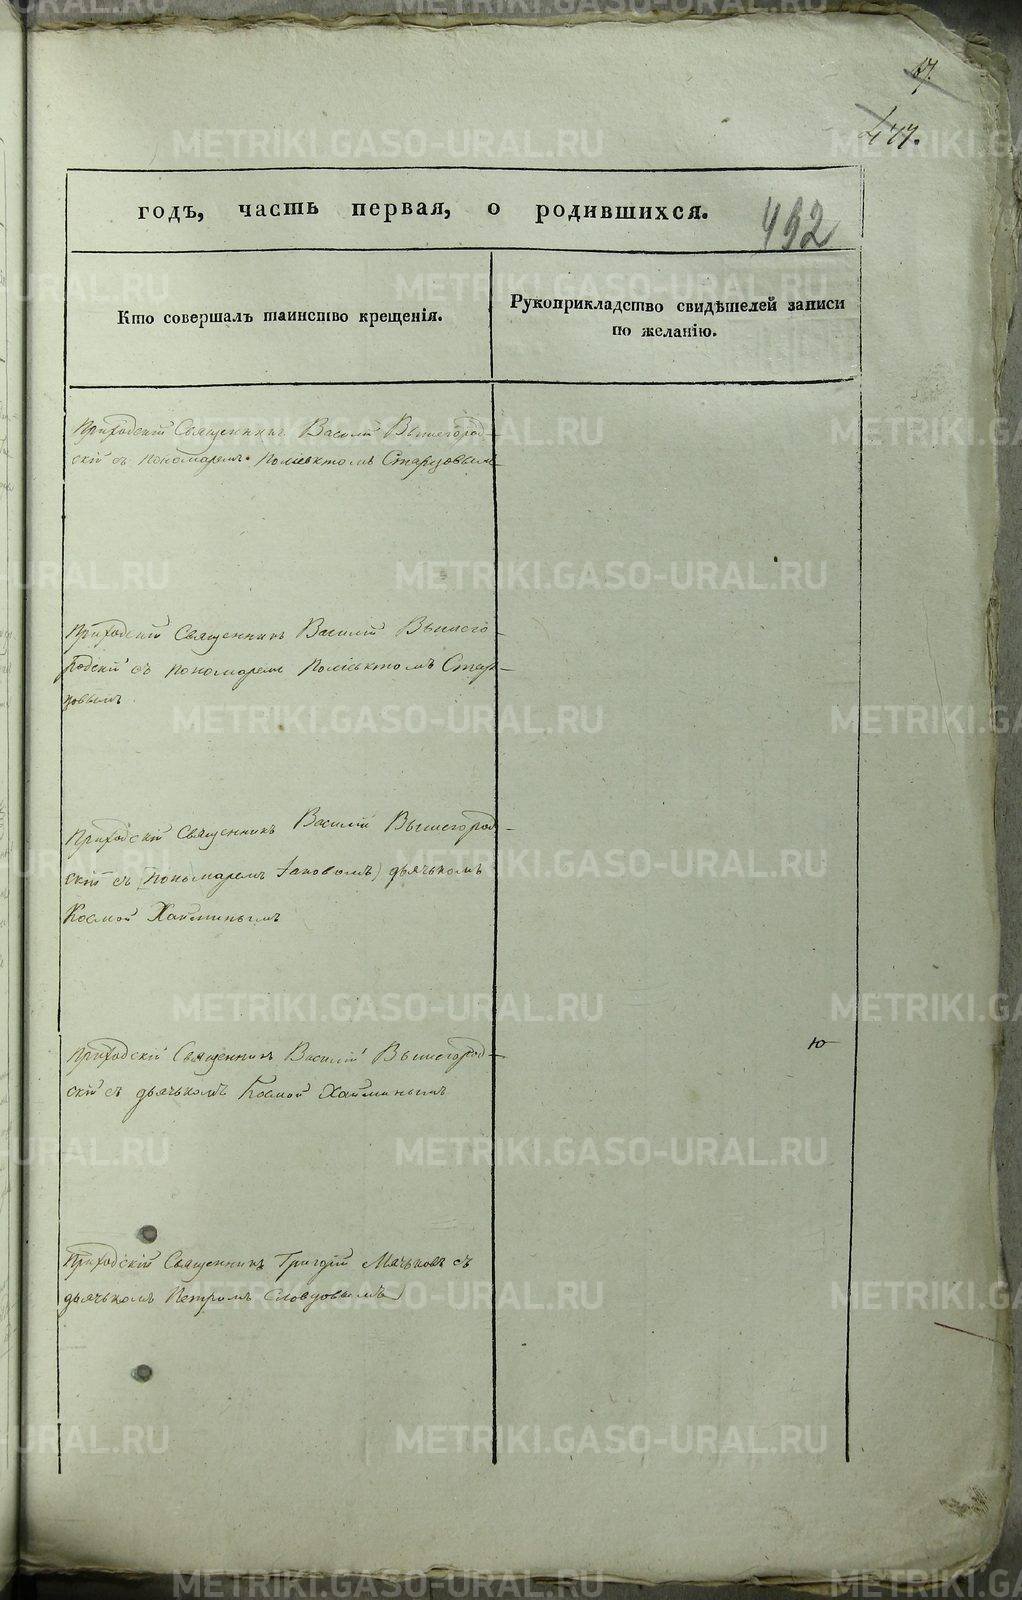 477.
годъ, часть первая, о родившихся.
492
Кто совершалъ таинство крещенія.
Рукоприкладство свидѣтелей записи
по желанію.
Приходскій Священникъ Василій Вышегород-
скій съ пономаремъ Поліевктомъ Старцовымъ
Приходскій Священникъ Василій Вышего-
родскій съ пономаремъ Поліевктомъ Стар-
цовымъ
Приходскій Священникъ Василій Вышегород-
скій съ (пономаремъ) дьячькомъ
Космой Хайминымъ
Приходскій Священникъ Василій Вышегород-
скій съ дьячькомъ Космой Хайминымъ
ю
Приходскій Священникъ Григорій Мячьковъ съ
дьячькомъ Петромъ Словцовымъ
METRIKI.GASO-URAL.RU